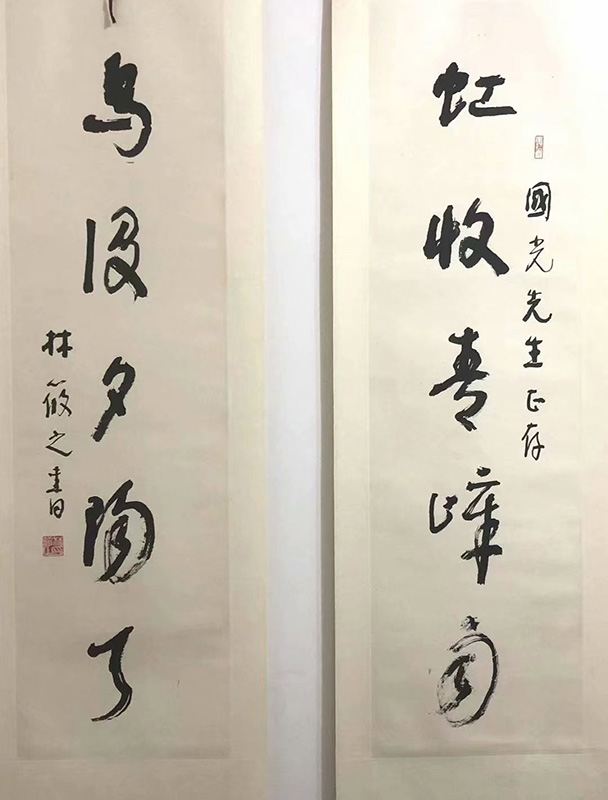 國光先生正存
虹收青嶂雨
鳥沒夕陽天
林筱之書